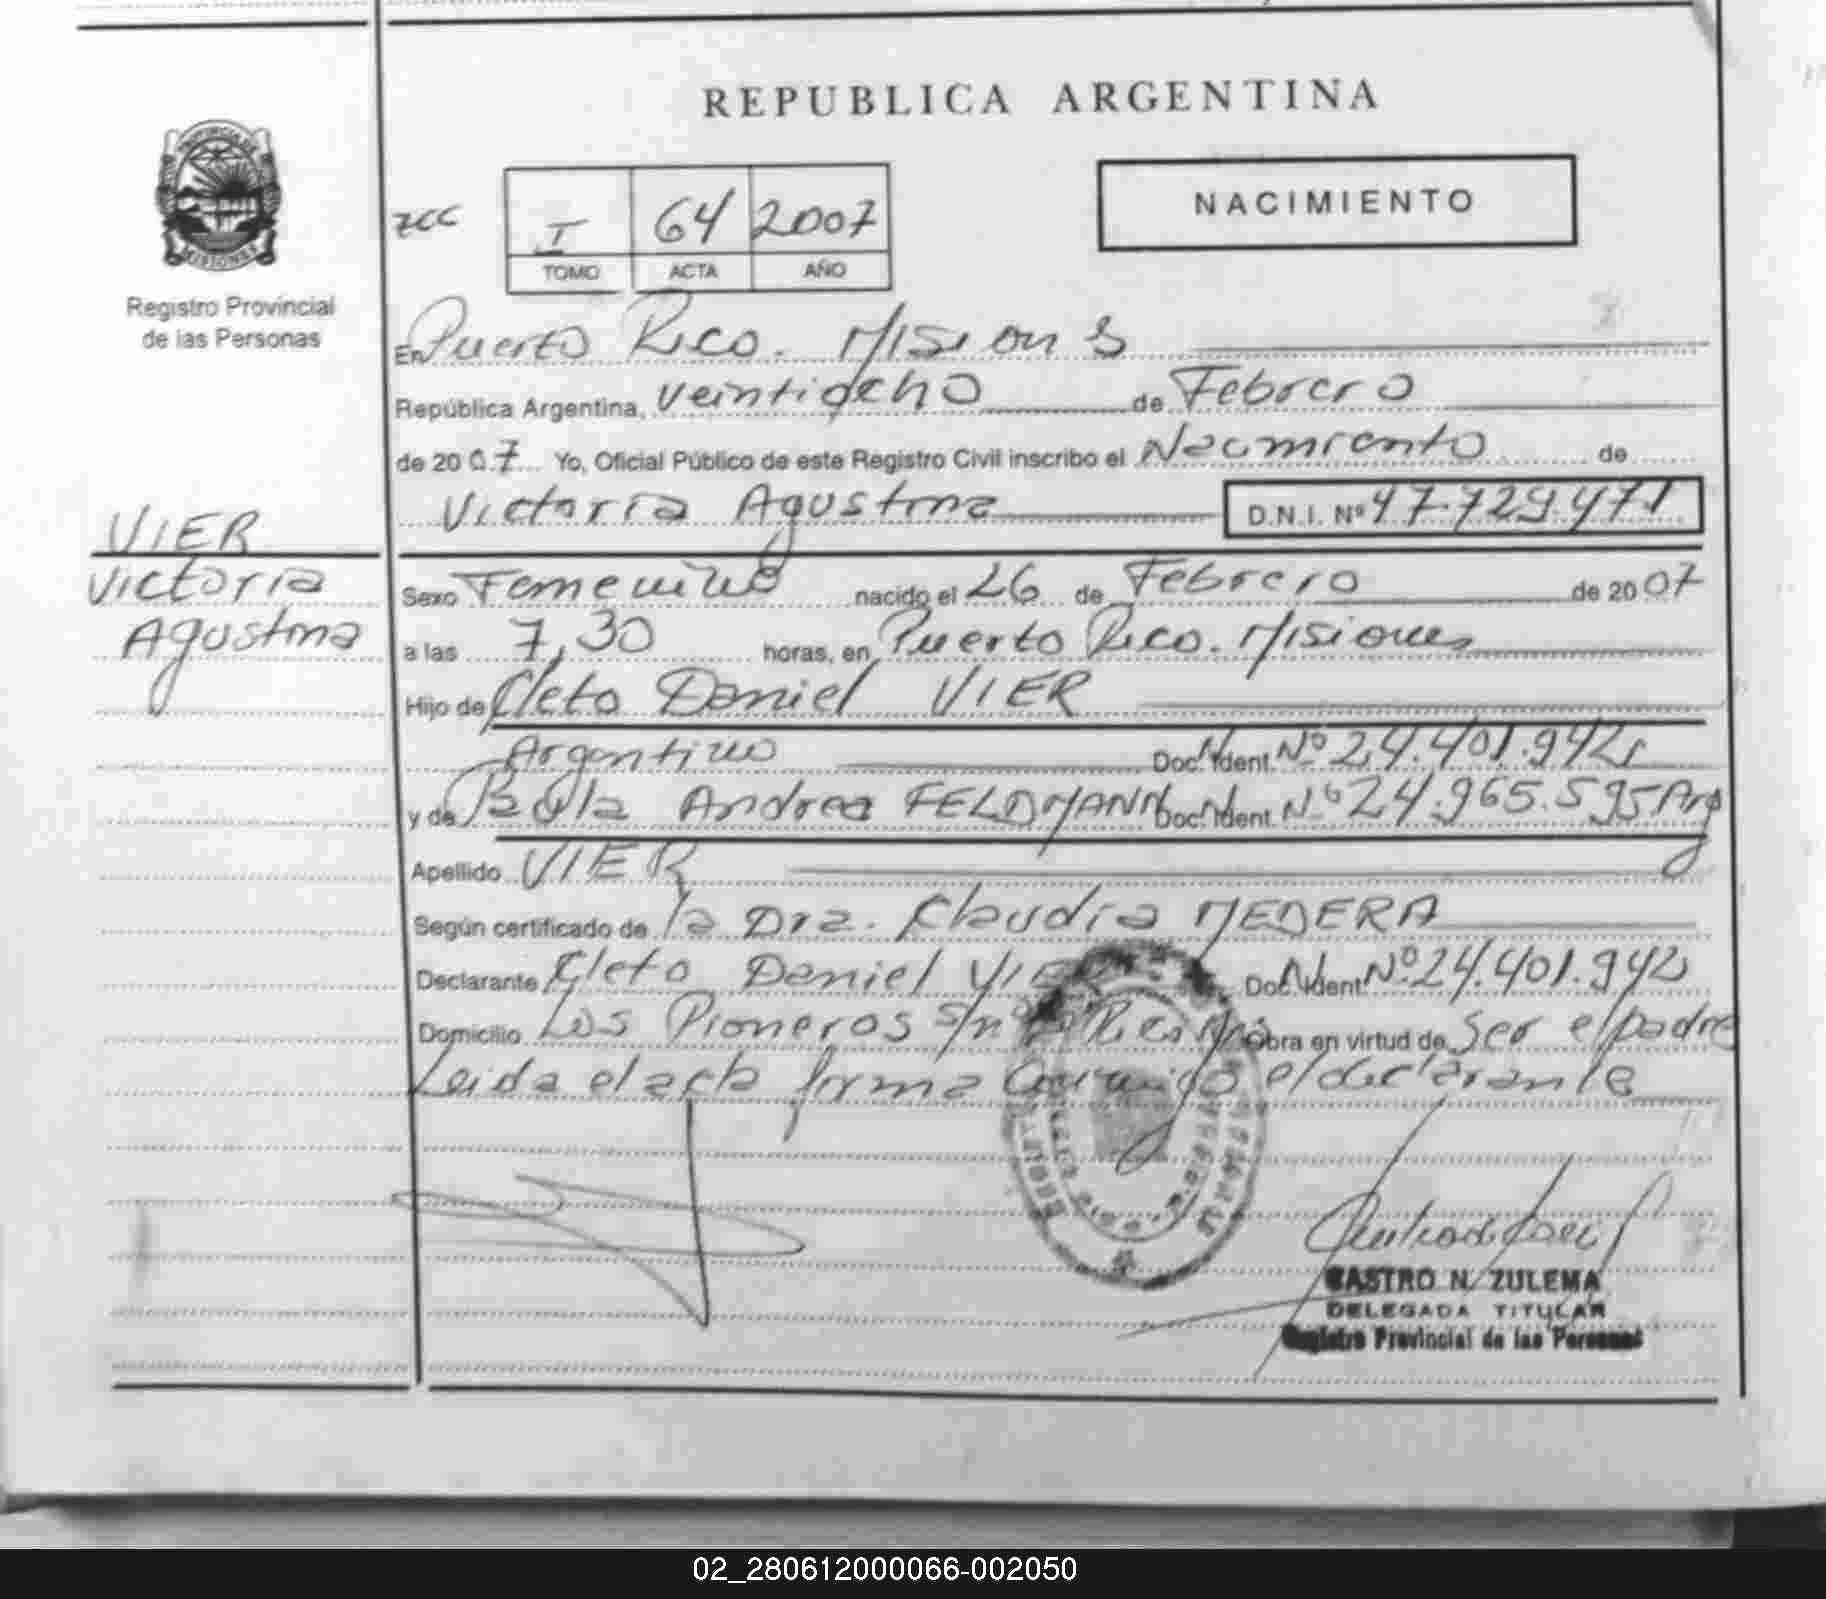 REPUBLICA ARGENTINA
PROVINCIA DE
MISIONES
Registro Provincial
de las Personas
zcc
I 64 2007
TOMO ACTA AÑO
NACIMIENTO
En Puerto Rico. Misiones
República Argentina, veintiocho de Febrero
de 2007 Yo, Oficial Público de este Registro Civil inscribo el Nacimiento de
Victoria Agustina D.N.I. Nº 47.729.471
VIER
Victoria
Agustina
Sexo Femenino nacido el 26 de Febrero de 2007
a las 7,30 horas, en Puerto Rico. Misiones
Hijo de Cleto Daniel VIER
Argentino Doc. Ident. Nº 24.401.942
y de Paola Andrea FELDMANN Doc. Ident. Nº 24.965.595 Arg
Apellido VIER
Según certificado de la Dra. Claudia MEDERA
Declarante Cleto Daniel VIER Doc. Ident. Nº 24.401.942
Domicilio Los Pioneros S/nº Pto Rico Mnes Obra en virtud de Ser el padre
Leida el acta firma conmigo el declarante
CASTRO N. ZULEMA
DELEGADA TITULAR
Registro Provincial de las Personas
02_280612000066-002050